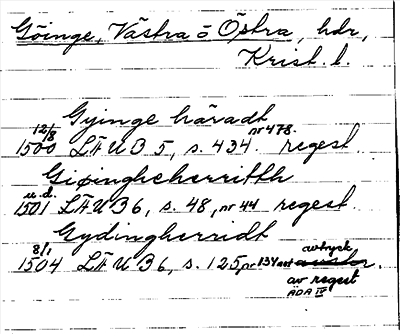 Göinge, Västra o Östra, hdr,
Krist. l.
Gyinge häradt
12/8 1500 LÄUB 5, s. 434. nr 478. regest
Giøingheherritth
u.d. 1501 LÄUB 6, s. 48, nr 44 regest
Gydingherridt
8/1 1504 LÄUB 6, s. 125, nr 134 avtryck
av regest
ÄDA IV